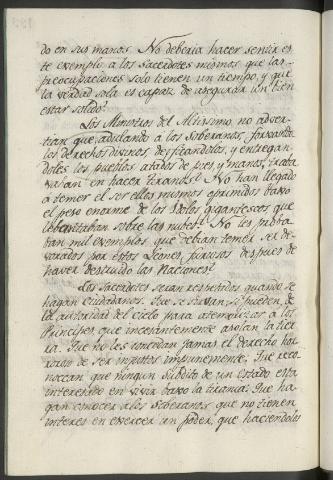 do en sus manos. No deberia hacer sentir es
te exemplo a los sacerdotes mismos que las
preocupaciones solo tienen un tiempo, y que
la verdad sola es capaz de asegurar un bien
estar solido?
Los Ministros del Altisimo, no adver-
tian que adulando a los Soberanos, forxando
los derechos divinos, deificandolos, y entregan
doles los pueblos atados de pies y manos, traba
xavan en hacer tiranos? No han llegado
a temer el ser ellos mismos oprimidos baxo
el peso enorme de los Idolos gigantescos que
lebantaban sobre las nubes? No les proba
ban mil exemplos que debian temer ser de-
vorados por estos Leones furiosos despues de
haver destruido las Naciones?
Los Sacerdotes seran respetados quando se
hagan ciudadanos. Que se sirvan, si pueden, de
la autoridad del Cielo para atemorizar a los
Principes que incesantemente asolan la tier
ra. Que no les concedan jamas el derecho hor
roroso de ser injustos impunemente. Que reco-
nozcan que ningun subdito de un estado esta
interesado en vivir baxo la tirania: Que ha-
gan conocer a los Soberanos que no tienen
interes en exercer un poder, que haciendolos